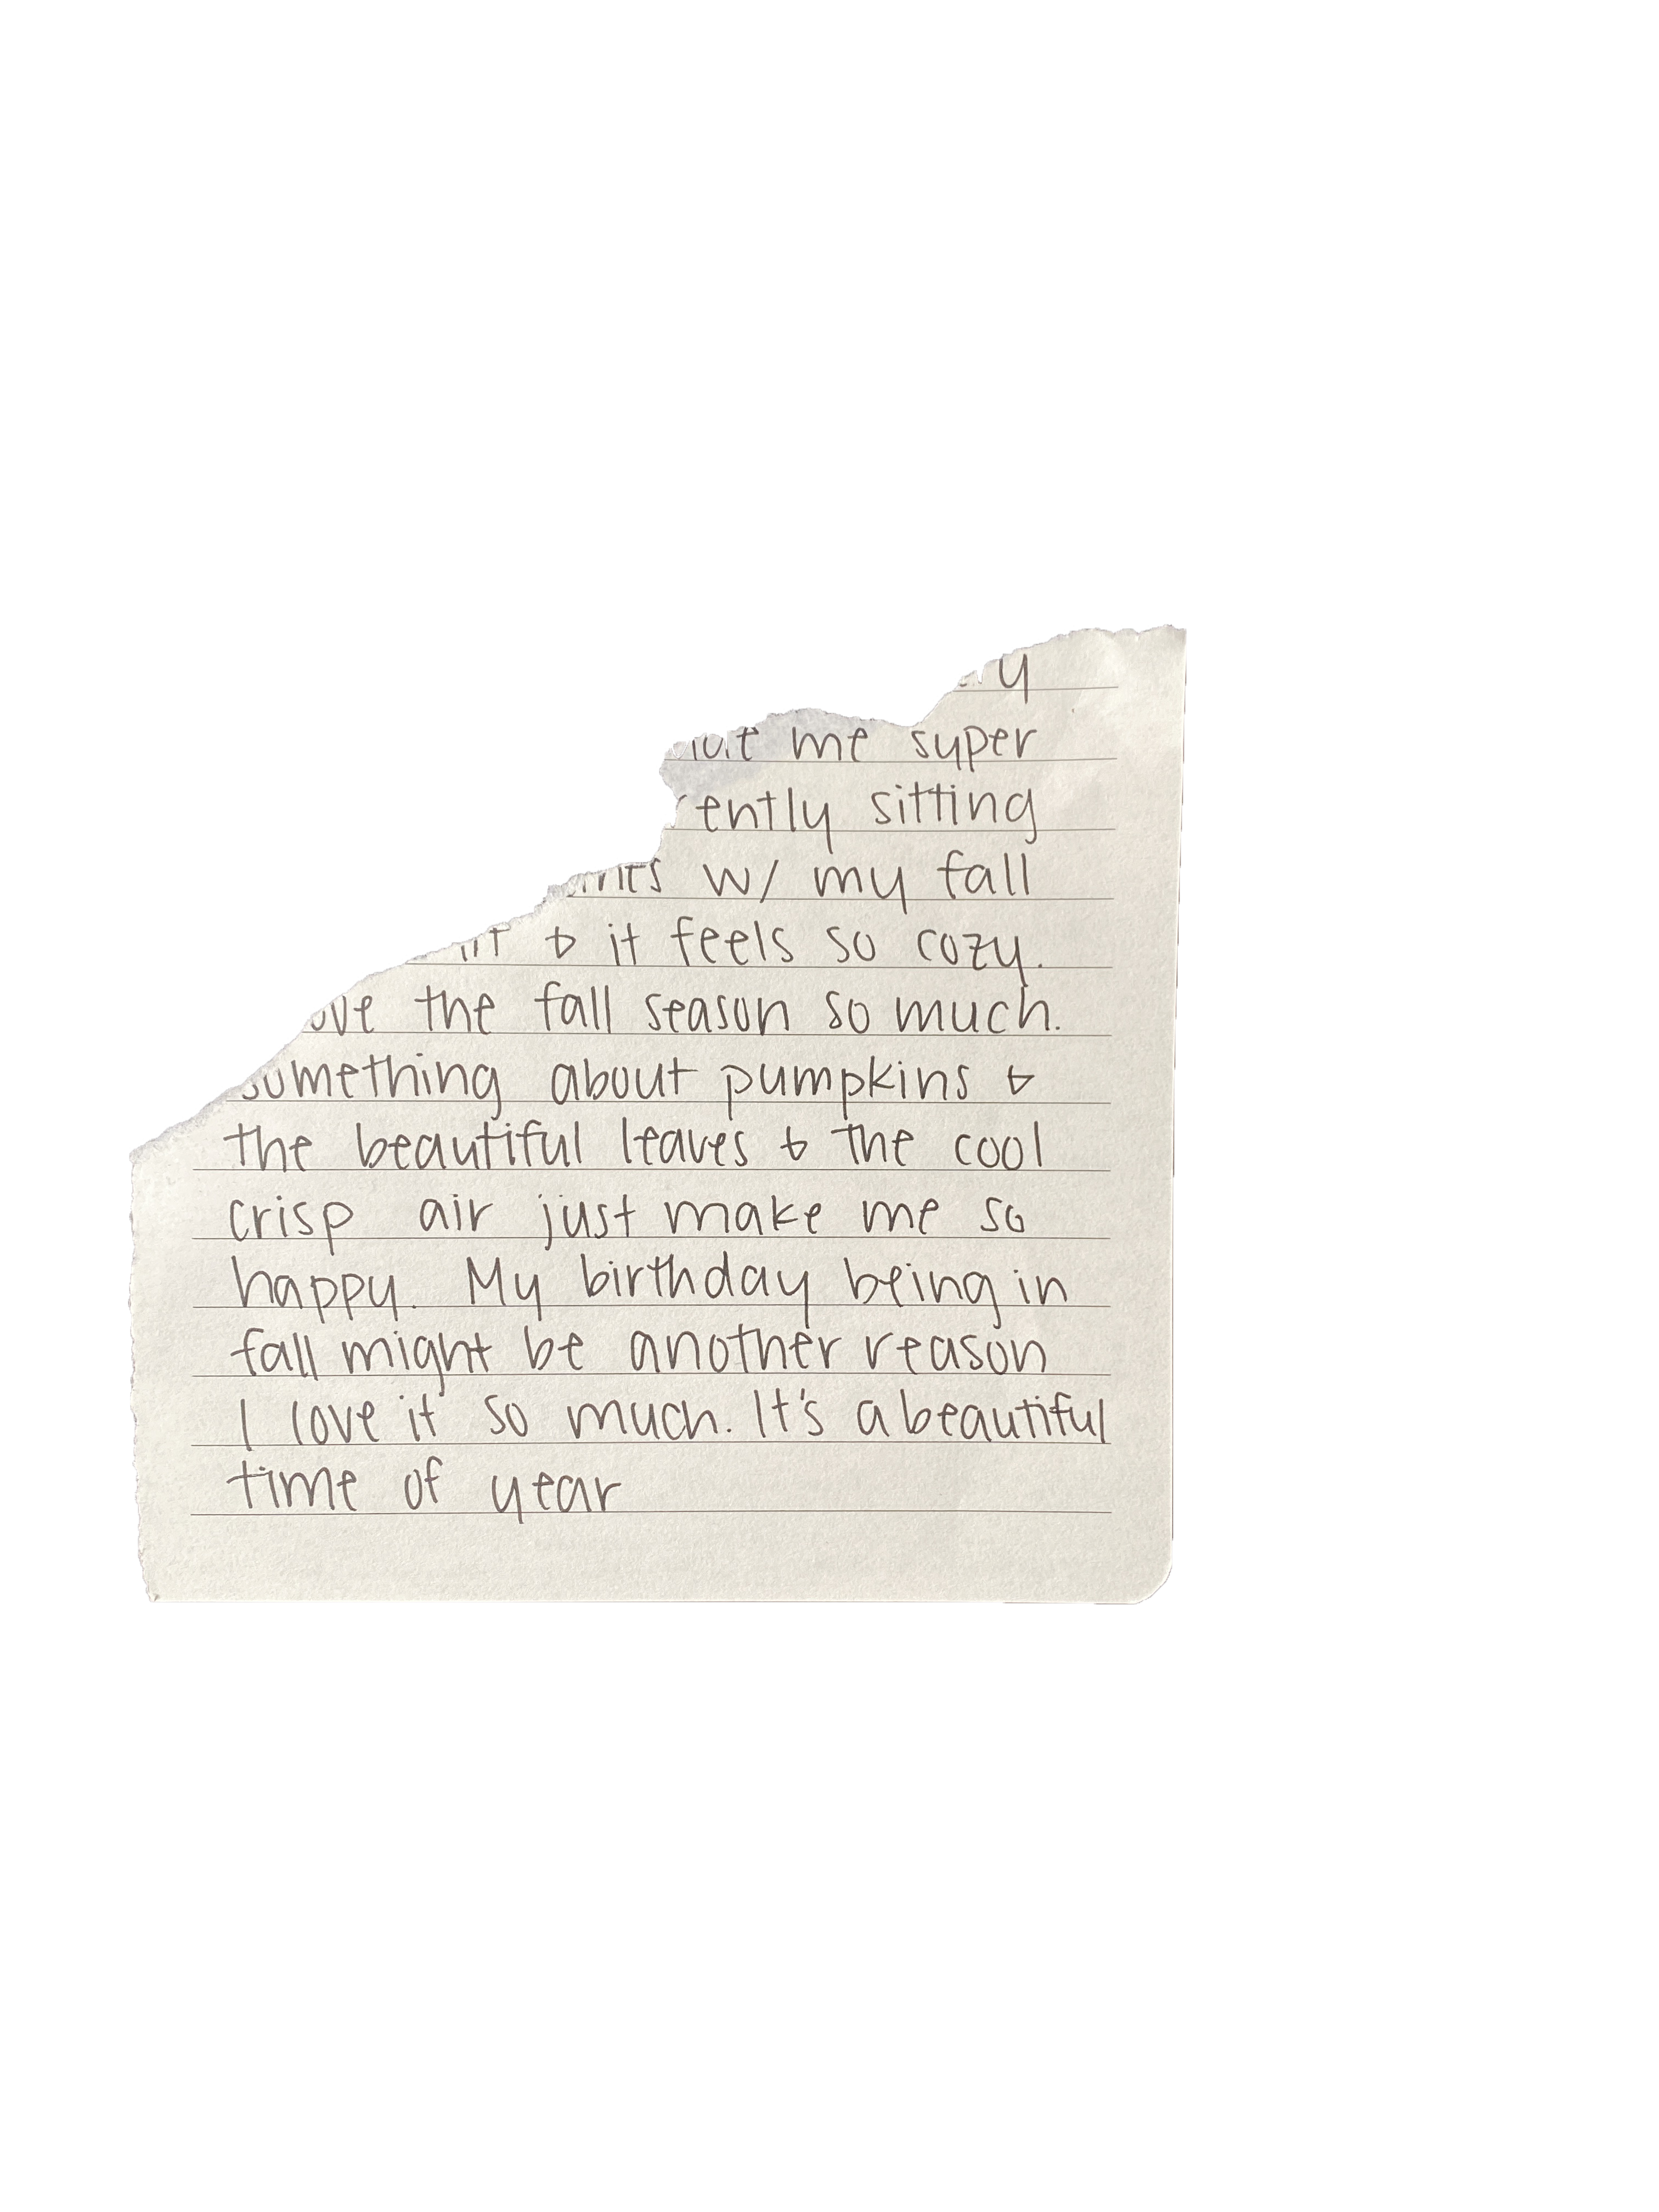 me super
sitting
w/ my fall
& it feels so cozy.
the fall season so much.
something about pumpkins &
the beautiful leaves & the cool
crisp air just make me so
happy. My birthday being in
fall might be another reason
I love it so much. It's a beautiful
time of year